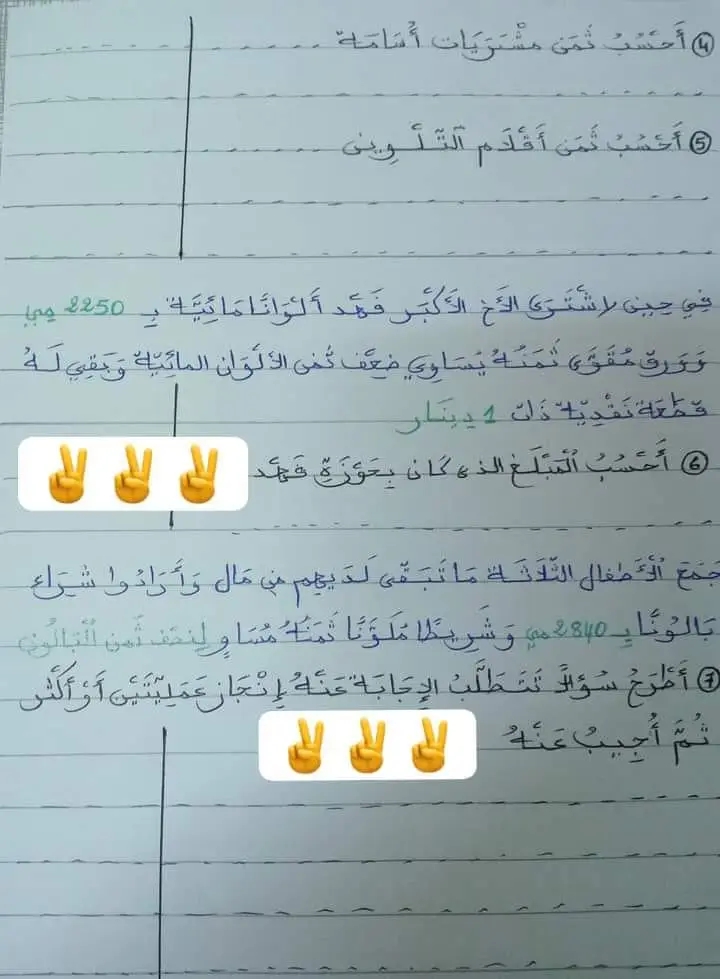 ④ أَحْسُبُ ثَمَنَ مُشْتَرَيَات أُسَامَة
⑤ أَحْسُبُ ثَمَنَ أَقْلَام التَّلْوِين
فِي حِين اشْتَرَى الأَخ الأَكْبَر فَهْد أَلْوَانًا مَائِيَّة بِ 2250 مي
وَوَرَق مُقَوَّى ثَمَنُهُ يُسَاوِي ضِعْف ثَمَن الأَلْوَان المائِيّة وَبَقِي لَهُ
قِطْعَة نَقْدِيّة ذَات 1 دينَار
⑥ أَحْسُبُ الْمَبْلَغ الذي كَان بِحَوْزَةِ فَهْد
جَمَعَ الأَطْفَال الثَّلَاثَة مَا تَبَقَّى لَدَيهِم مِن مَال وَأَرَادُوا شِرَاء
بَالُونًا بِ 2840 مي وَشَرِيطًا مُلَوَّنًا ثَمَنُهُ مُسَاوٍ لِنِصْف ثَمن الْبَالُون
⑦ أَطْرَحُ سُؤَالًا تَتَطَلَّبُ الإِجَابَة عَنْهُ إِنْجَاز عَمَلِيَّتَيْن أَوْ أَكْثَر
ثُمَّ أُجِيبُ عَنْهُ